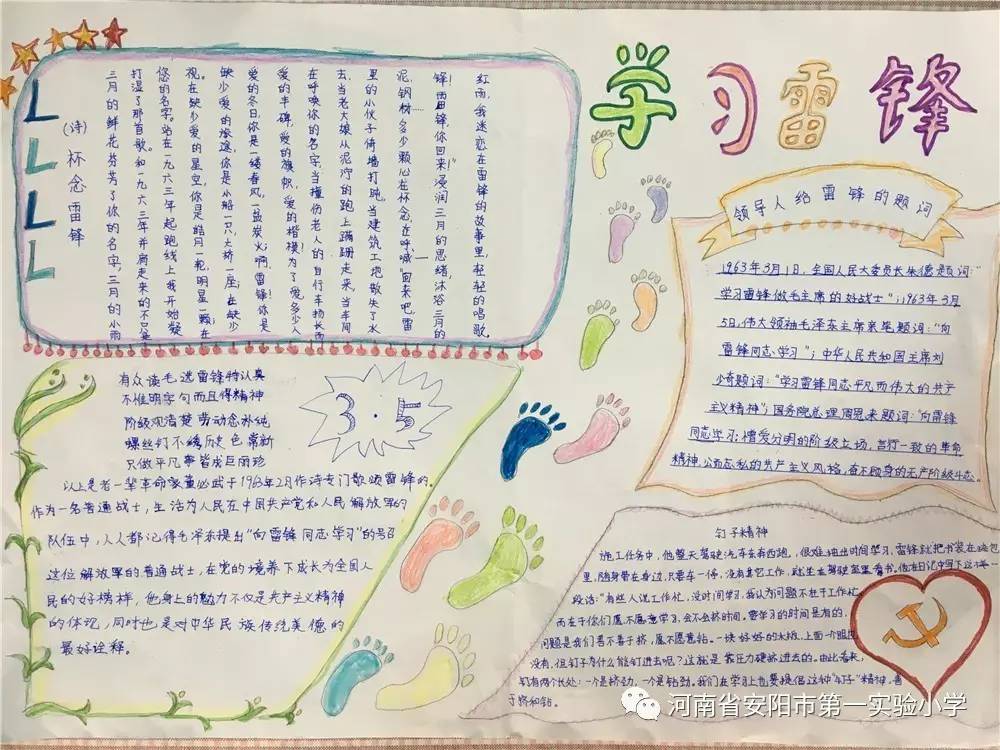 学习雷锋
(诗) 怀念雷锋
三月的鲜花芬芳了你的名字,三月的小雨
打湿了那首歌。和一九六三年并肩走来的不只是
您的名字。站在一九六三年起跑线上,我开始凝
视。在缺少爱的星空,你是皓月一轮,明星一颗;在
缺少爱的旅途,你是小船一只,大桥一座;在缺少
爱的冬日,你是一缕春风,一盆炭火;啊,雷锋!你是
爱的丰碑,爱的旗帜,爱的楷模!为了爱,多少人
在呼唤你的名字,当撞伤老人的自行车扬长而
去,当老大娘从泥泞的跑上蹒跚走来,当车间
里的小伙子倚墙打盹,当建筑工地散失了水
泥,钢材……多少颗心在怀念,在呼喊"回来吧,雷
锋!雷锋,你回来!"浸润三月的思绪,沐浴三月的
红雨,我迷恋在雷锋的故事里,轻轻的唱歌,
领导人给雷锋的题词
1963年3月1日,全国人民大委员长朱德题词:"
学习雷锋做毛主席的好战士";1963年3月
5日,伟大领袖毛泽东主席亲笔题词:"向
雷锋同志学习";中华人民共和国主席刘
少奇题词:"学习雷锋同志平凡而伟大的共产
主义精神";国务院总理周恩来题词:"向雷锋
同志学习:憎爱分明的阶级立场,言行一致的革命
精神,公而忘私的共产主义风格,奋不顾身的无产阶级斗志。
3·5
有众读毛选雷锋特认真
不惟明字句而且得精神
阶级观清楚 劳动态朴纯
螺丝钉不锈历史色常新
只做平凡事皆成巨丽珍
以上是老一辈革命家董必武于1963年2月作诗专门歌颂雷锋的。
作为一名普通战士,生活为人民在中国共产党和人民解放军的
队伍中,人人都记得毛泽东提出"向雷锋同志学习"的号召
这位解放军的普通战士,在党的培养下成长为全国人
民的好榜样,他身上的魅力不仅是共产主义精神
的体现,同时也是对中华民族传统美德的
最好诠释。
钉子精神
施工任务中,他整天驾驶汽车东奔西跑,很难抽出时间学习,雷锋就把书装在挎包
里,随身带在身边,只要车一停,没有其它工作,就坐在驾驶室里看书。他在日记中写下这样一
段话:"有些人说工作忙,没时间学习,我认为问题不在于工作忙,
而在于你们愿不愿意学习,会不会挤时间。要学习的时间是有的,
问题是我们善不善于挤,愿不愿意钻。一块好好的木板,上面一个眼也
没有,但钉子为什么能钉进去呢?这就是靠压力硬挤进去的。由此看来,
钉有两个长处:一个是挤劲,一个是钻劲。我们在学习上也要提倡这种"钉子"精神,善
于挤和钻。
河南省安阳市第一实验小学